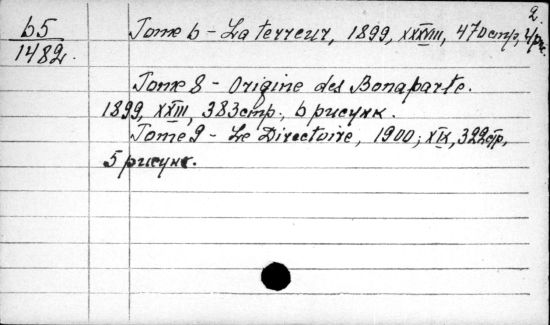 2.
65
1482.
Tome 6 - La terreur, 1899, XXXVIII, 470 стр, 4 рис.
Tome 8 - Origine des Bonaparte.
1899, XXIII, 383 стр., 6 рисунк.
Tome 9 - Le Directoire, 1900; XIX, 322 стр,
5 рисунк.